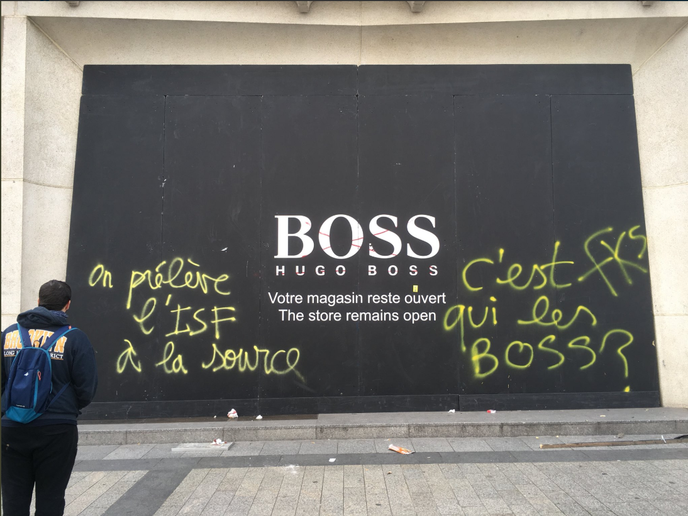 BOSS
HUGO BOSS
Votre magasin reste ouvert
The store remains open
on prélève
l'ISF
à la source
c'est
qui les
BOSS?